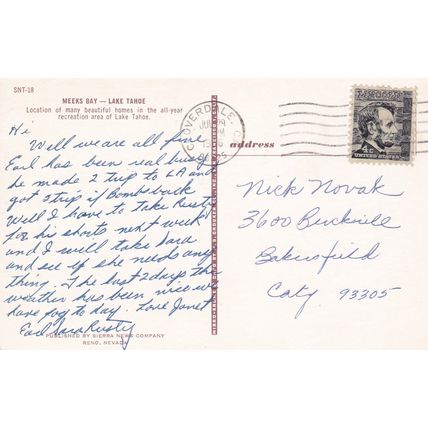 SNT-18
MEEKS BAY — LAKE TAHOE
Location of many beautiful homes in the all-year
recreation area of Lake Tahoe.
Hi
Well we are all fine
Earl has been real busy
he made 2 trip to LA and
got 3 trip if Bombs back
Well I have to take Rusty
for his shots next week
and I will take Sara
and see if she needs any
thing. The last 2 days the
weather has been nice we
have fog to day. Love Janet
Earl Sara Rusty
PUBLISHED BY SIERRA NEWS COMPANY
RENO, NEVADA
CLOVERDALE,
address
4¢
UNITED STATES
Nick Novak
3600
Bakersfield
93305